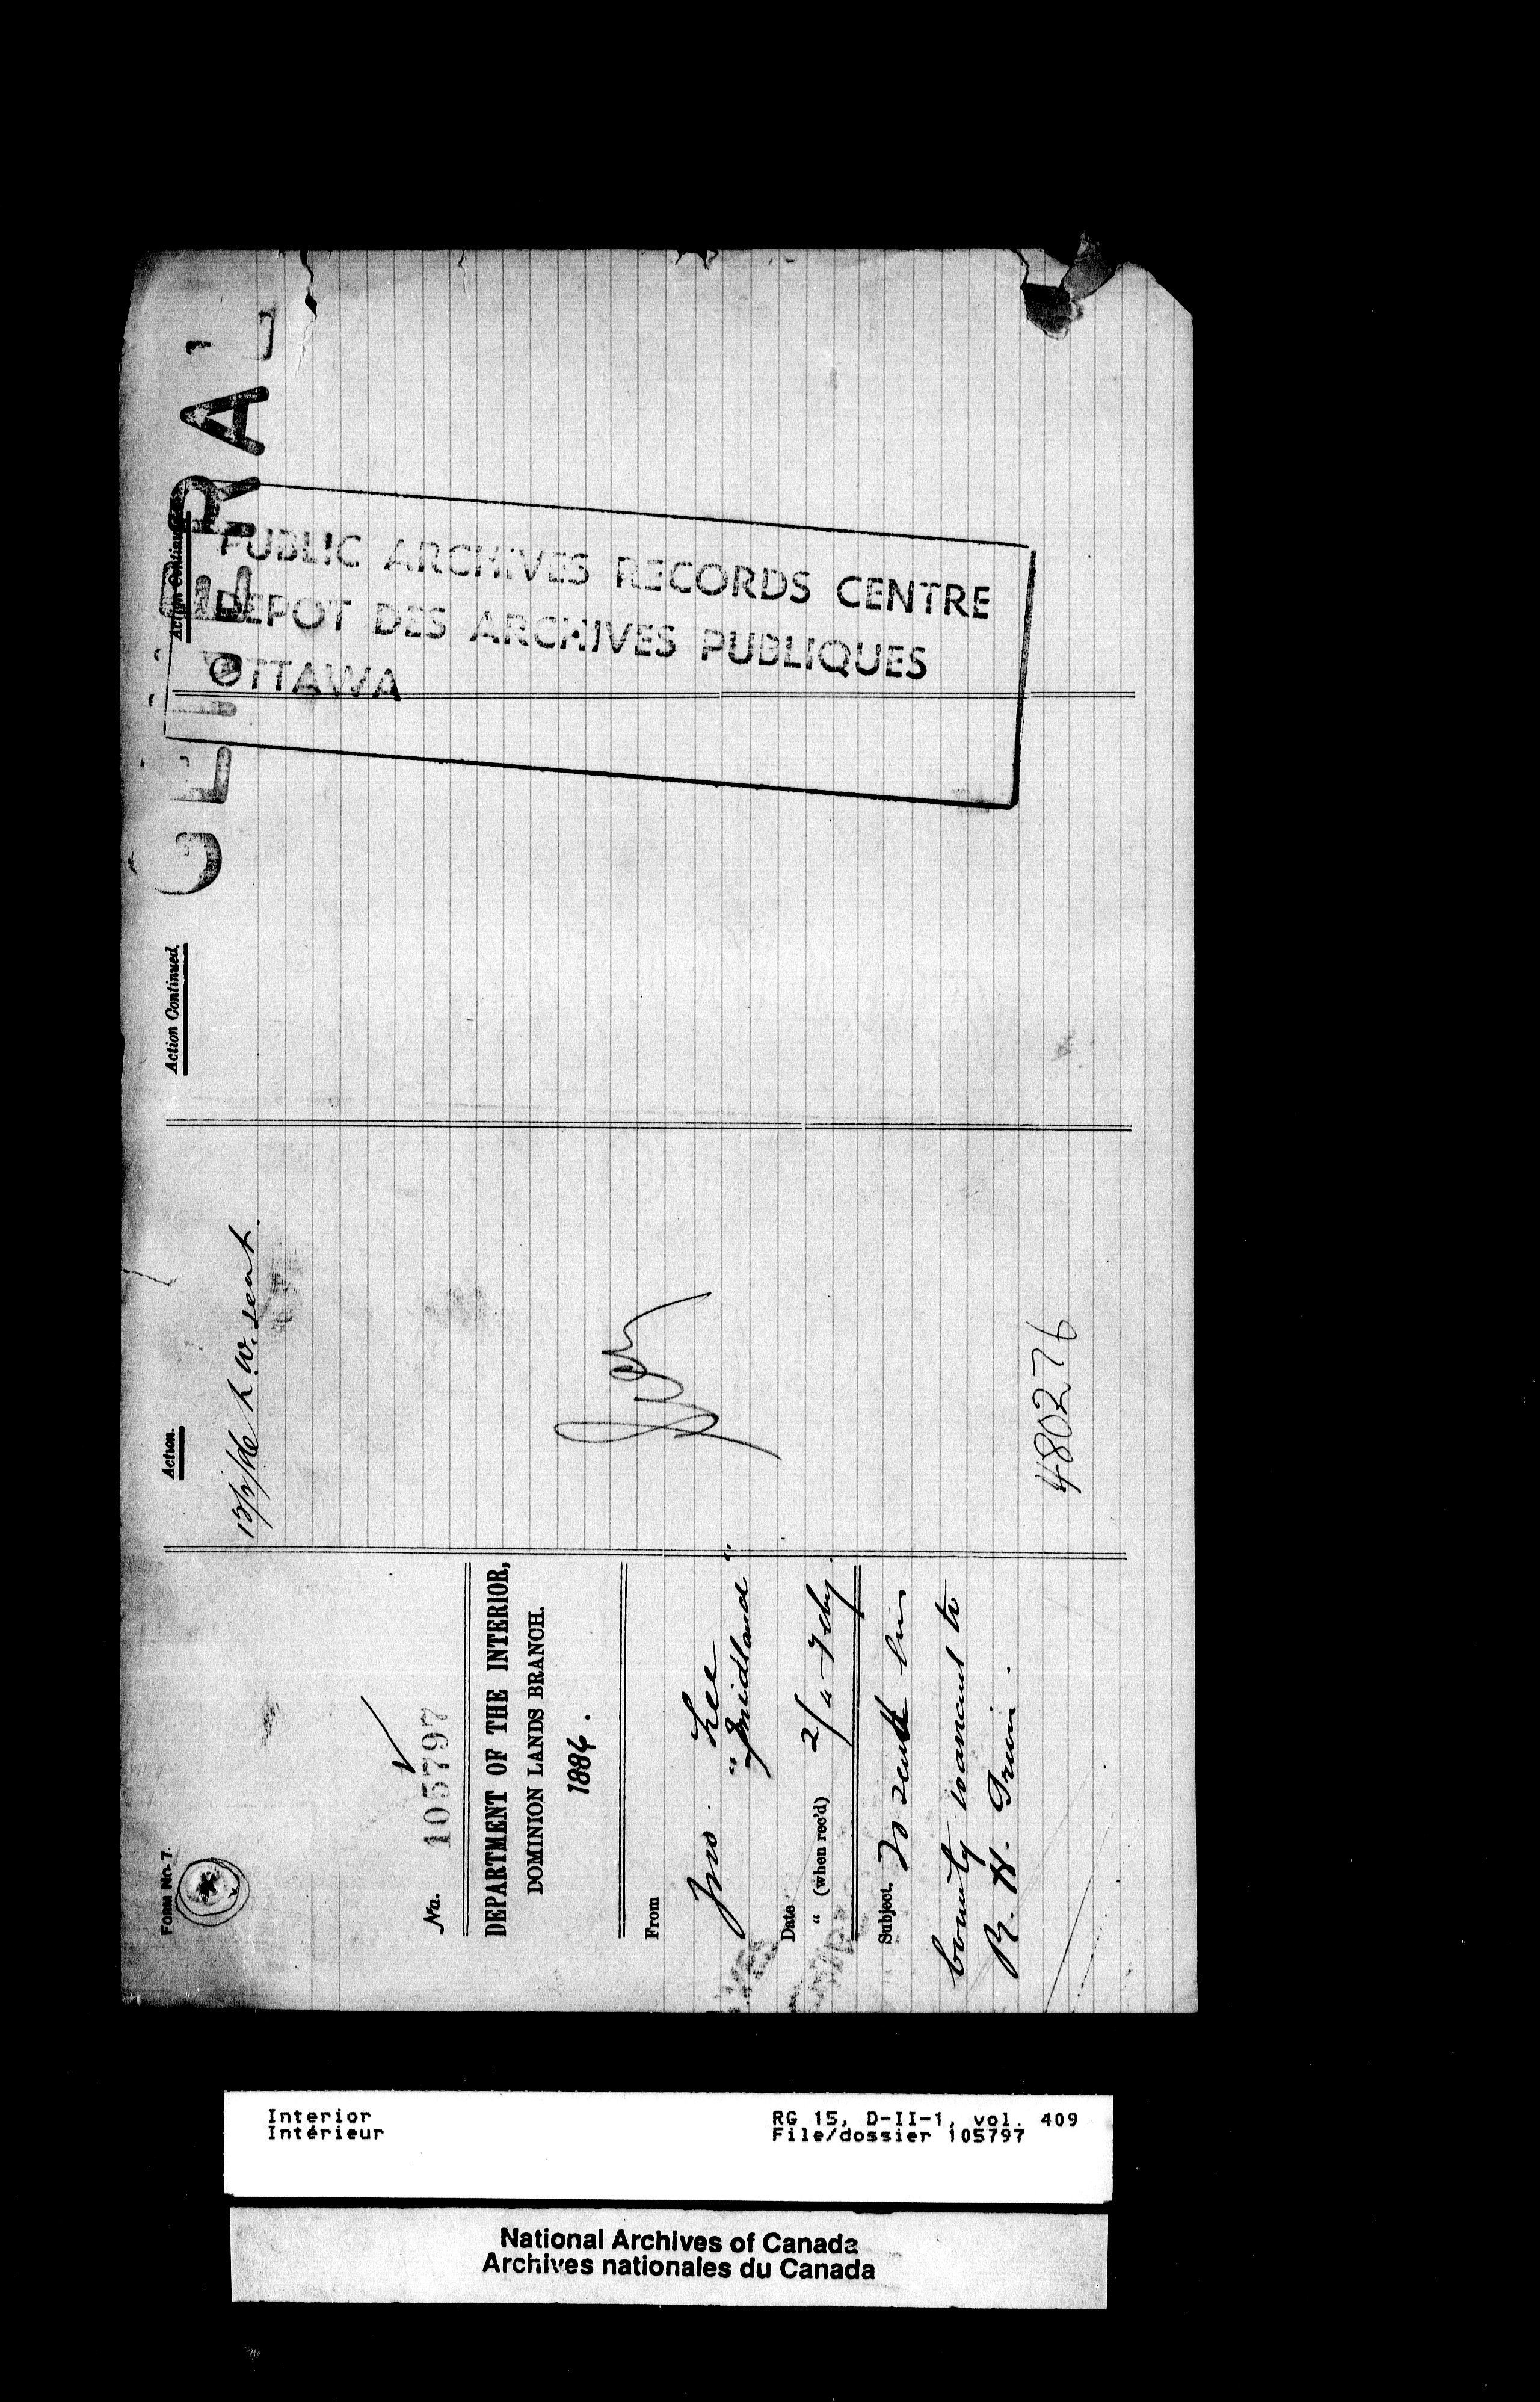 FORM No. 7.
No. 105797
DEPARTMENT OF THE INTERIOR,
DOMINION LANDS BRANCH.
1886.
From
Jno. Lee
"Midland"
Date 2/
" (when rec'd) 4 Feby
Subject. To send his
bounty warrant to
R. H.
Action.
L.W. sent.
480276
Action Continued.
Action Continued.
GENERAL
PUBLIC ARCHIVES RECORDS CENTRE
DEPOT DES ARCHIVES PUBLIQUES
OTTAWA
Interior
Intérieur
RG 15, D-II-1, vol. 409
File/dossier 105797
National Archives of Canada
Archives nationales du Canada